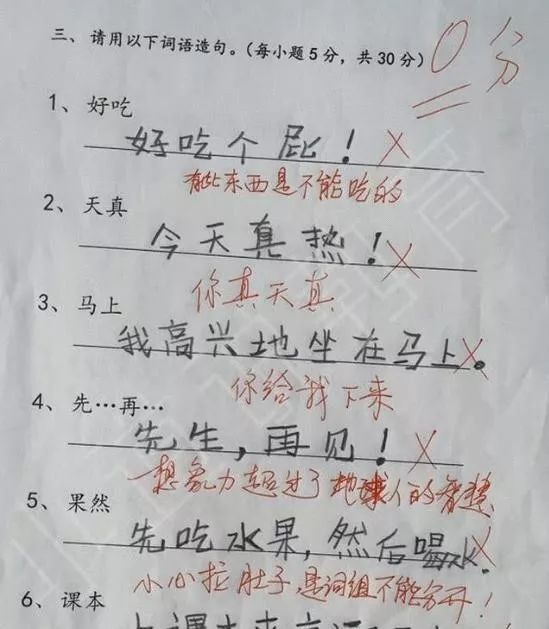 三、请用以下词语造句。(每小题5分，共30分) 0分
1、好吃
好吃个屁！
有些东西是不能吃的
2、天真
今天真热！
你真天真
3、马上
我高兴地坐在马上。
你给我下来
4、先…再…
先生，再见！
想象力超过了地球人的智慧
5、果然
先吃水果，然后喝水
小心拉肚子，是词组不能分开！
6、课本
上课本来